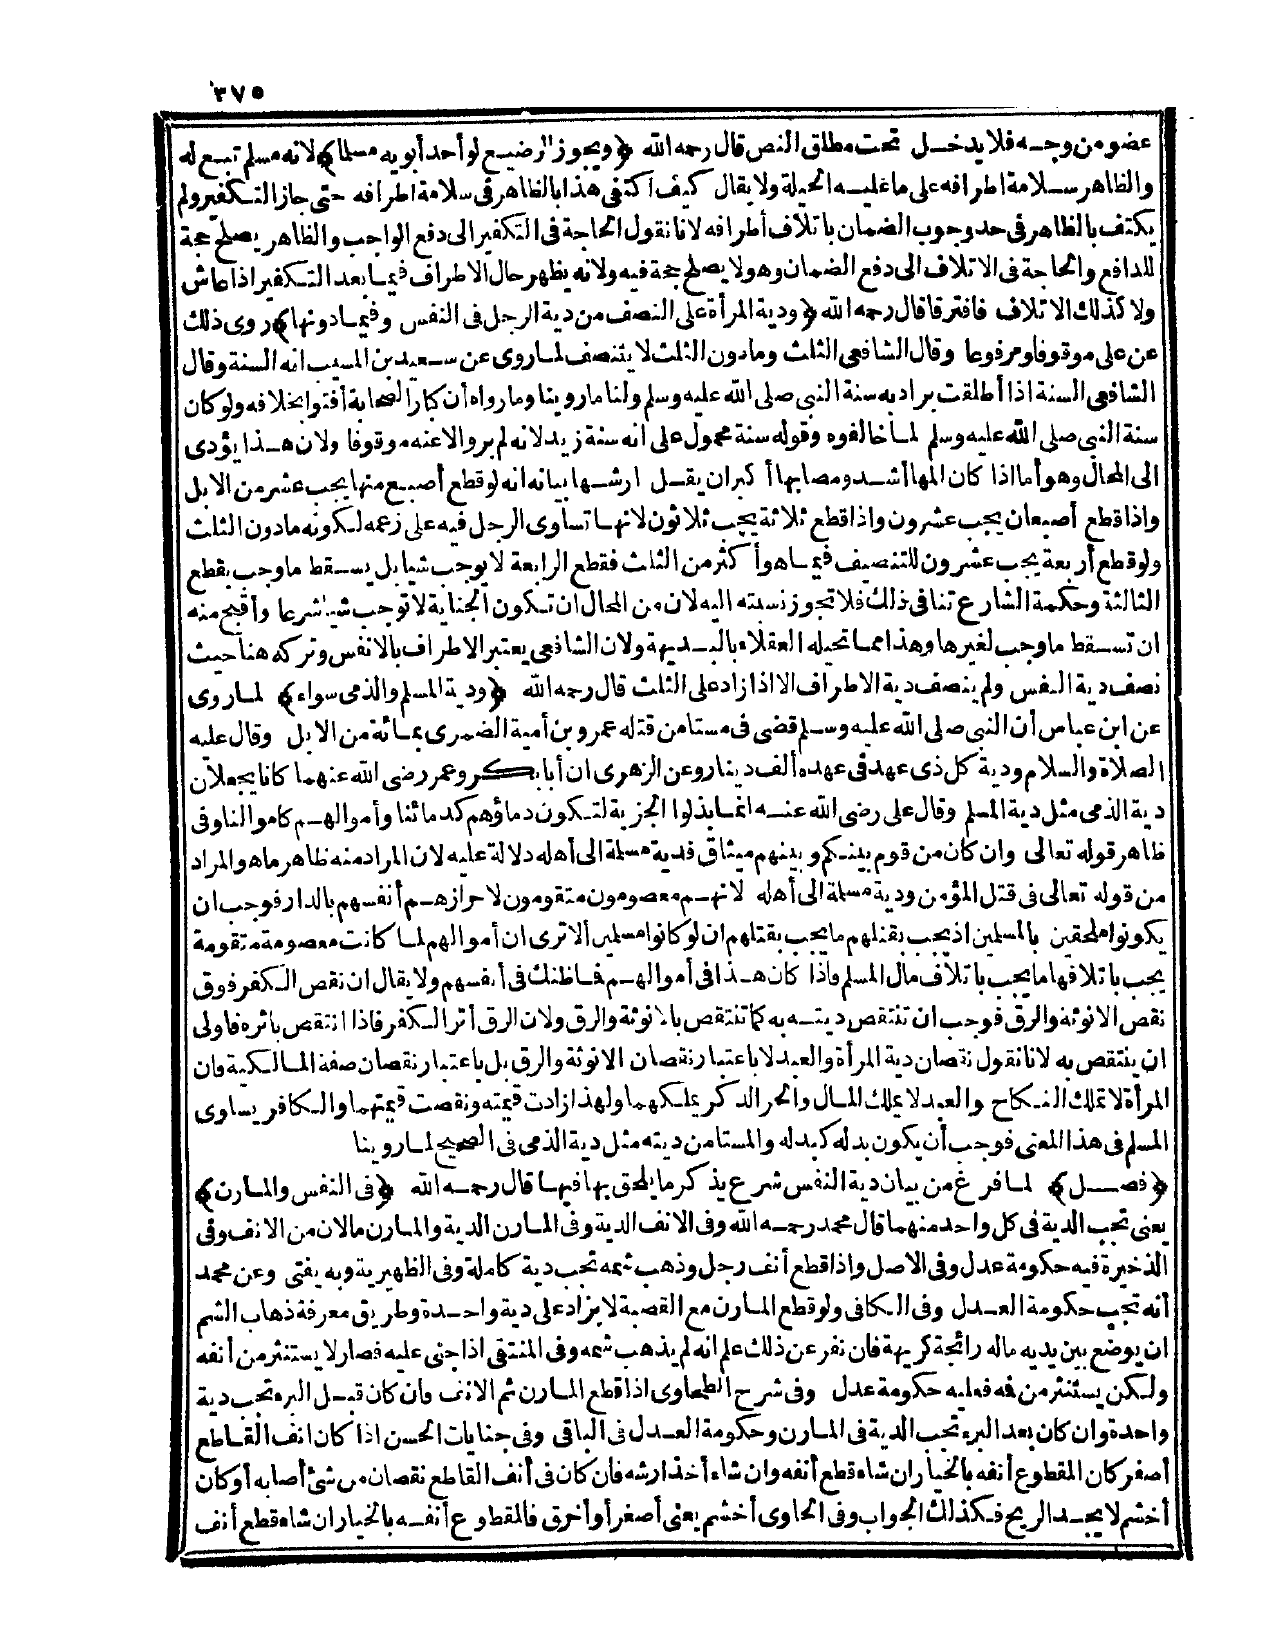 ٣٧٥
عضو من وجه فلا يدخل تحت مطلق النص قال رحمه الله ﴿ويجوز الرضيع لو أحد أبويه مسلما﴾ لانه مسلم تبع له
والظاهر سلامة اطرافه على ما عليه الحيلة ولا يقال كيف اكتفى هذا بالظاهر فى سلامة اطرافه حتى جاز التكفير ولم
يكتف بالظاهر فى حد وجوب الضمان باتلاف أطرافه لانا نقول الحاجة فى التكفير الى دفع الواجب والظاهر يصلح حجة
للدافع والحاجة فى الاتلاف الى دفع الضمان وهو لا يصلح حجة فيه ولانه يظهر حال الاطراف فيما بعد التكفير اذا عاش
ولا كذلك الاتلاف فافترقا قال رحمه الله ﴿ودية المرأة على النصف من دية الرجل فى النفس وفيما دونها﴾ روى ذلك
عن على موقوفا ومرفوعا وقال الشافعى الثلث ومادون الثلث لا يتنصف لما روى عن سعيد بن المسيب انه السنة وقال
الشافعى السنة اذا أطلقت يراد به سنة النبى صلى الله عليه وسلم ولنا ما روينا وما رواه أن كبار الصحابة أفتوا بخلافه ولو كان
سنة النبى صلى الله عليه وسلم لما خالفوه وقوله سنة محمول على انه سنة زيد لانه لم يرو الا عنه موقوفا ولان هذا يؤدى
الى المحال وهو أما اذا كان المها أشد ومصابها أكبر ان يقل ارشها بيانه انه لو قطع أصبع منها يجب عشر من الابل
واذا قطع أصبعان يجب عشرون واذا قطع ثلاثة يجب ثلاثون لانها تساوى الرجل فيه على زعمه لكونه مادون الثلث
ولو قطع أربعة يجب عشرون للتنصيف فيما هو أكثر من الثلث فقطع الرابعة لا يوجب شيا بل يسقط ما وجب بقطع
الثالثة وحكمة الشارع تنافى ذلك فلا تجوز نسبته اليه لان من المحال ان تكون الجناية لا توجب شيا شرعا وأقبح منه
ان تسقط ما وجب لغيرها وهذا مما تحيله العقلاء بالبديهة ولان الشافعى يعتبر الاطراف بالانفس وتركه هنا حيث
نصف دية النفس ولم ينصف دية الاطراف الا اذا زاد على الثلث قال رحمه الله ﴿ودية المسلم والذمى سواء﴾ لما روى
عن ابن عباس أن النبى صلى الله عليه وسلم قضى فى مستامن قتله عمرو بن أمية الضمرى بمائة من الابل وقال عليه
الصلاة والسلام ودية كل ذى عهد فى عهده ألف دينار وعن الزهرى ان أبا بكر وعمر رضى الله عنهما كانا يجعلان
دية الذمى مثل دية المسلم وقال على رضى الله عنه انما بذلوا الجزية لتكون دماؤهم كدمائنا وأموالهم كاموالنا وفى
ظاهر قوله تعالى وان كان من قوم بينكم وبينهم ميثاق فدية مسلمة الى أهله دلالة عليه لان المراد منه ظاهر ما هو المراد
من قوله تعالى فى قتل المؤمن ودية مسلمة الى أهله لانهم معصومون متقومون لاحرازهم أنفسهم بالدار فوجب ان
يكونوا ملحقين بالمسلمين اذ يجب بقتلهم ما يجب بقتلهم ان لو كانوا مسلمين ألا ترى ان أموالهم لما كانت معصومة متقومة
يجب باتلافها ما يجب باتلاف مال المسلم واذا كان هذا فى أموالهم فما ظنك فى أنفسهم ولا يقال ان نقص الكفر فوق
نقص الانوثة والرق فوجب ان تنتقص ديته به كما تنتقص بالانوثة والرق ولان الرق أثر الكفر فاذا انتقص باثره فاولى
ان ينتقص به لانا نقول نقصان دية المرأة والعبد لا باعتبار نقصان الانوثة والرق بل باعتبار نقصان صفة المالكية فان
المرأة لا تملك النكاح والعبد لا يملك المال والحر الذكر يملكهما ولهذا زادت قيمته ونقصت قيمتهما والكافر يساوى
المسلم فى هذا المعنى فوجب أن يكون بدله كبدله والمستامن ديته مثل دية الذمى فى الصحيح لما روينا
﴿فصل﴾ لما فرغ من بيان دية النفس شرع يذكر ما يلحق بها فيها قال رحمه الله ﴿فى النفس والمارن﴾
يعنى تجب الدية فى كل واحد منهما قال محمد رحمه الله وفى الانف الدية وفى المارن الدية والمارن مالان من الانف وفى
الذخيرة فيه حكومة عدل وفى الاصل واذا قطع أنف رجل وذهب شمه تجب دية كاملة وفى الظهيرية وبه يفتى وعن محمد
أنه تجب حكومة العدل وفى الكافى ولو قطع المارن مع القصبة لا يزاد على دية واحدة وطريق معرفة ذهاب الشم
ان يوضع بين يديه ماله رائحة كريهة فان نفر عن ذلك علم انه لم يذهب شمه وفى المنتقى اذا جنى عليه فصار لا يستنثر من أنفه
ولكن يستنثر من فمه فعليه حكومة عدل وفى شرح الطحاوى اذا قطع المارن ثم الانف فان كان قبل البرء تجب دية
واحدة وان كان بعد البرء تجب الدية فى المارن وحكومة العدل فى الباقى وفى جنايات الحسن اذا كان انف القاطع
أصغر كان المقطوع أنفه بالخيار ان شاء قطع أنفه وان شاء أخذ ارشه فان كان فى أنف القاطع نقصان من شئ أصابه أو كان
أخشم لا يجد الريح فكذلك الجواب وفى الحاوى أخشم يعنى أصغر أو أخرق فالمقطوع أنفه بالخيار ان شاء قطع أنف